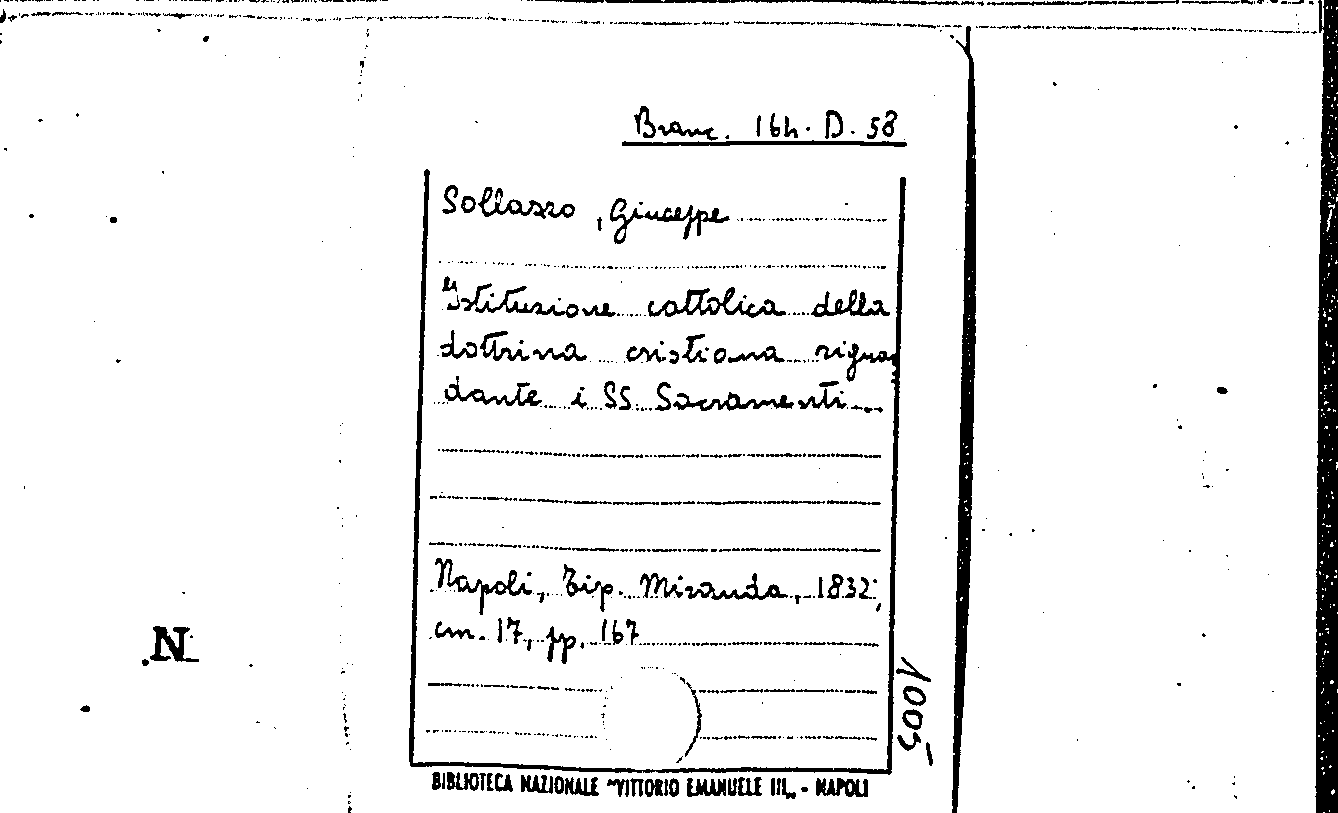 Branc. 16h. D. 58
Sollazzo, Giuseppe
Istituzione cattolica della
dottrina cristiana riguar
dante i SS. Sacramenti...
Napoli, Tip. Miranda, 1832;
cm. 17, pp. 167
1005
N
BIBLIOTECA NAZIONALE "VITTORIO EMANUELE III„ - NAPOLI